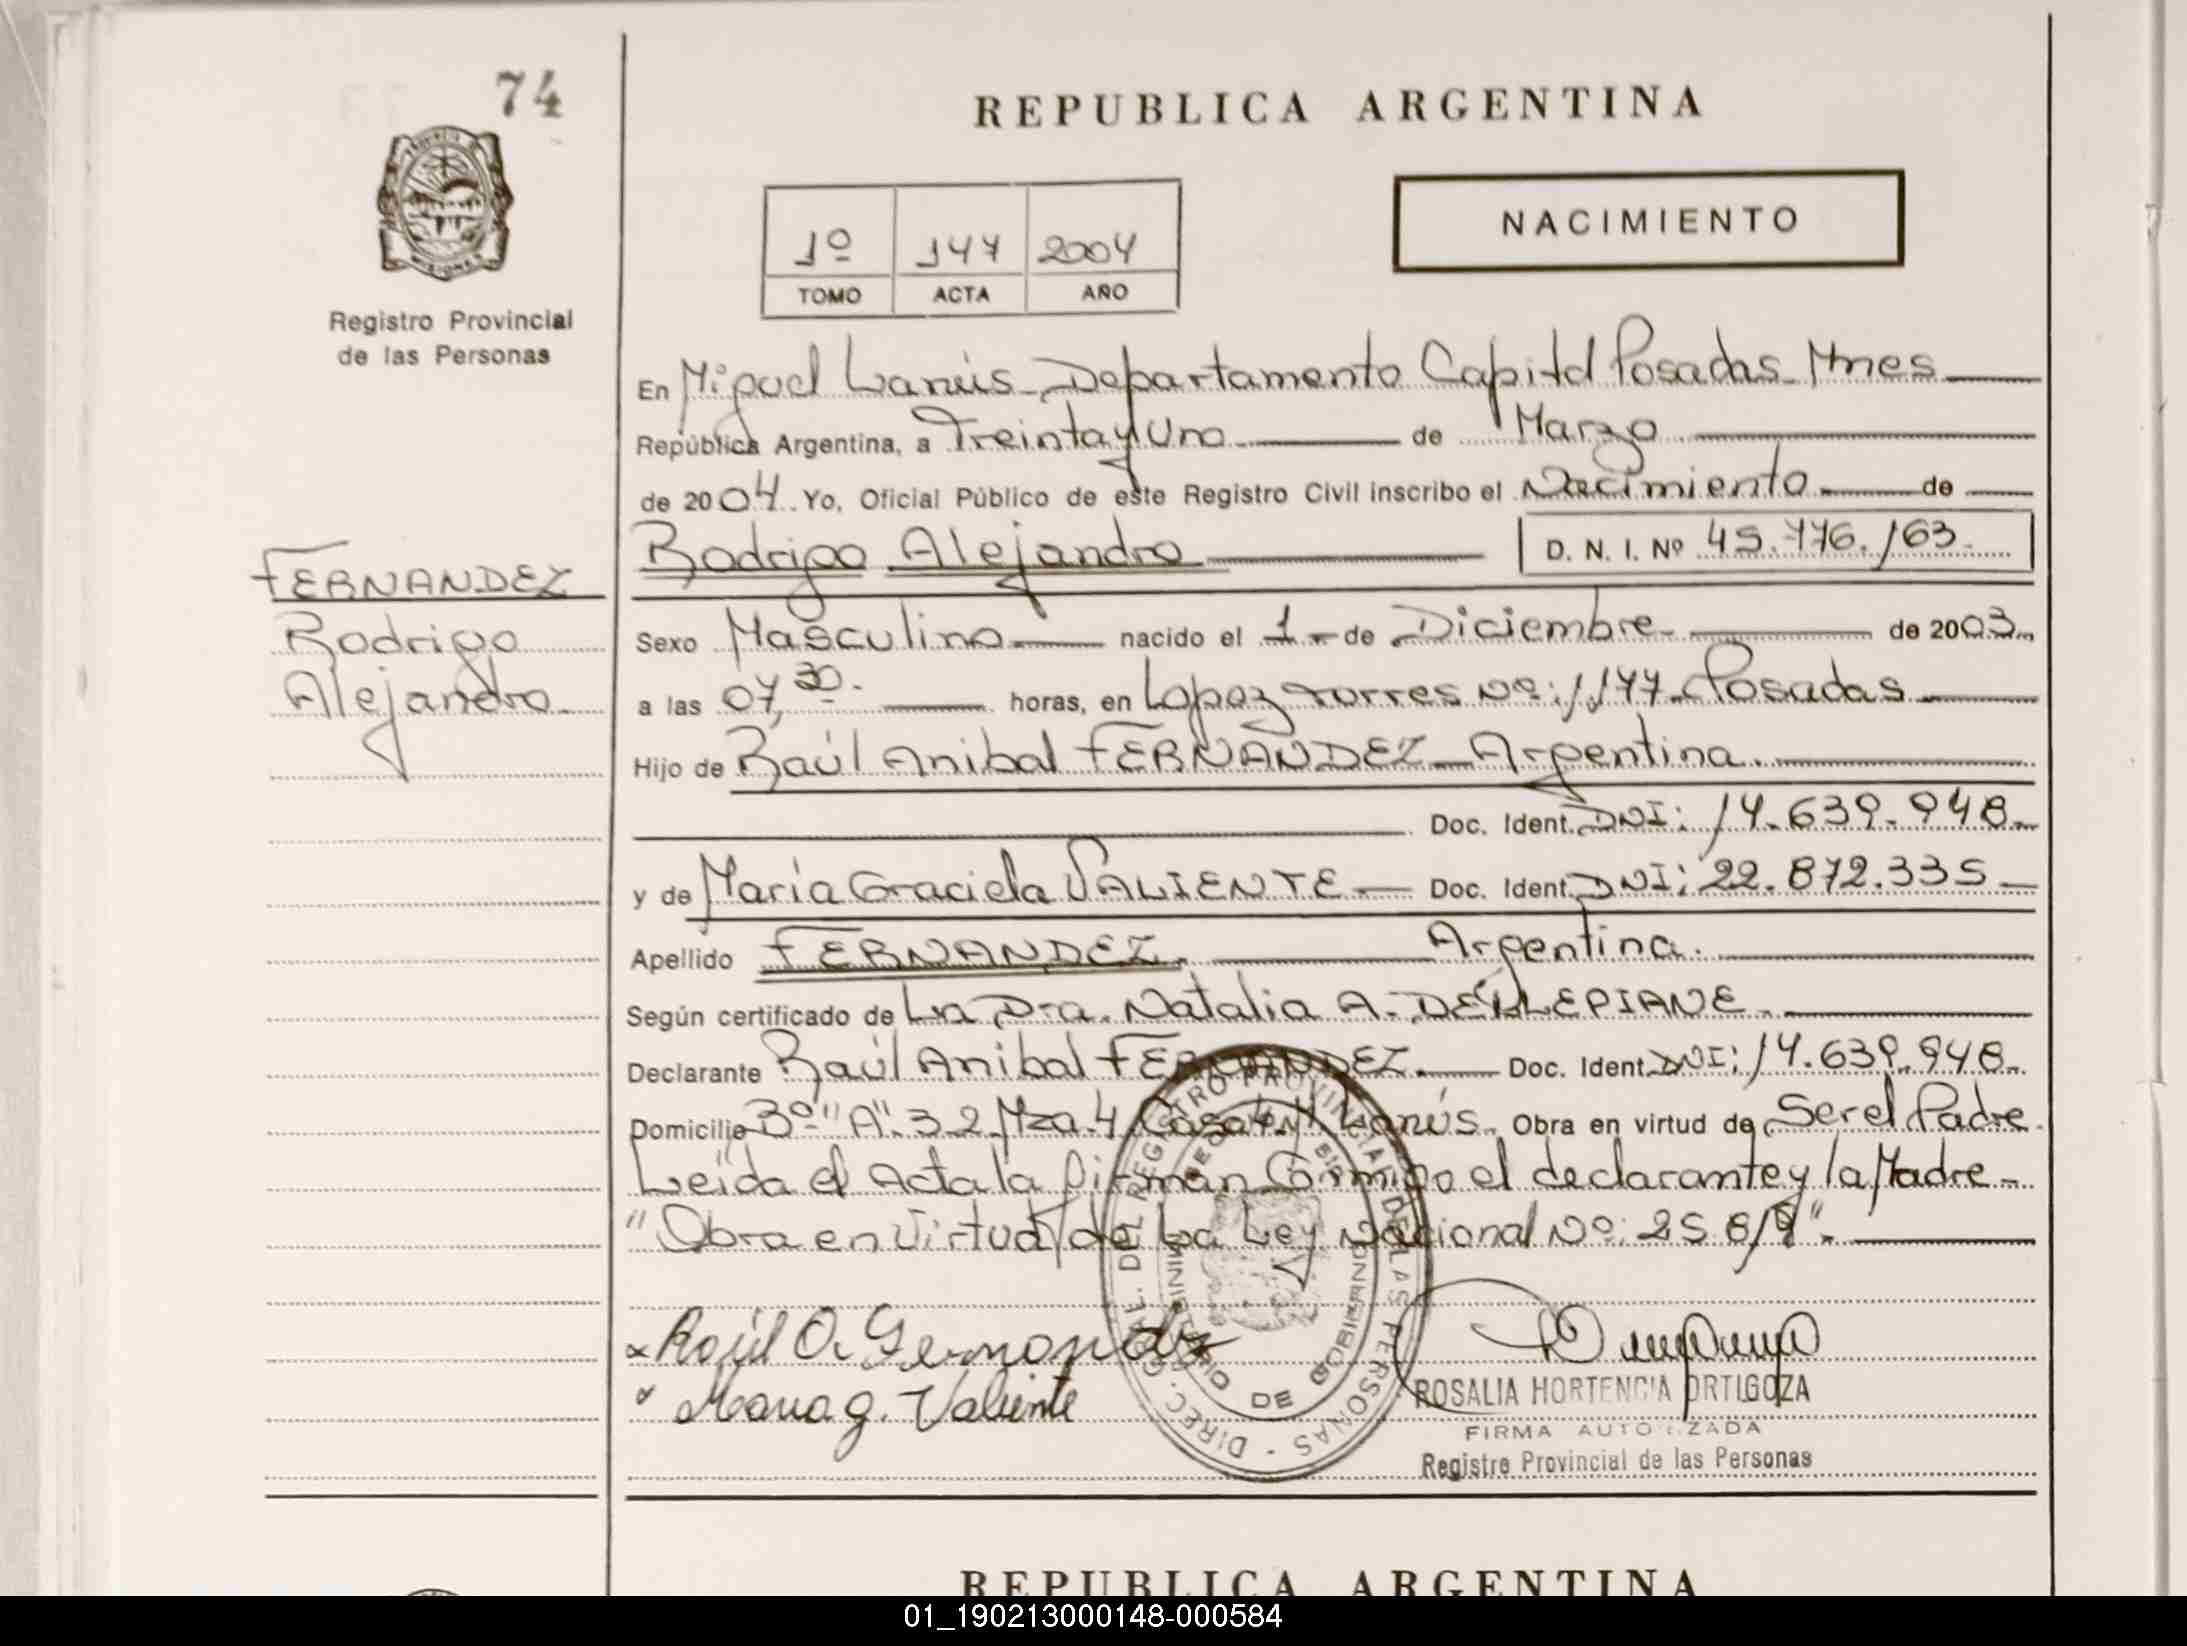 74
REPUBLICA ARGENTINA
1º 147 2004
TOMO ACTA AÑO
NACIMIENTO
MISIONES
Registro Provincial
de las Personas
En Miguel Lanús - Departamento Capital Posadas Mnes
República Argentina, a Treinta y Uno de Marzo
de 2004. Yo, Oficial Público de este Registro Civil inscribo el Nacimiento de
Rodrigo Alejandro D. N. I. Nº 45.776.163.
FERNANDEZ
Rodrigo
Alejandro
Sexo Masculino nacido el 1- de Diciembre de 2003
a las 07,30. horas, en Lopez Torres Nº: 1.177. Posadas
Hijo de Raúl Anibal FERNANDEZ - Argentina.
Doc. Ident. DNI: 14.639.948.
y de María Graciela VALIENTE Doc. Ident. DNI: 22.872.335
Apellido FERNANDEZ. Argentina.
Según certificado de La Dra. Natalia A. DELLEPIANE.
Declarante Raúl Anibal FERNANDEZ. Doc. Ident. DNI: 14.639.948.
Domicilio Bº "A" 3.2 Mza 4 Casa 4 M. Lanús. Obra en virtud de Ser el Padre.
Leída el Acta la firman Conmigo el declarante y la Madre -
"Obra en Virtud de La Ley Nacional Nº: 25.819".
Raúl A. Fernandez
Maria g. Valiente
DIREC. GRAL. DEL REGISTRO PROVINCIAL DE LAS PERSONAS
MINISTERIO DE GOBIERNO
ROSALIA HORTENCIA ORTIGOZA
FIRMA AUTORIZADA
Registro Provincial de las Personas
REPUBLICA ARGENTINA
01_190213000148-000584